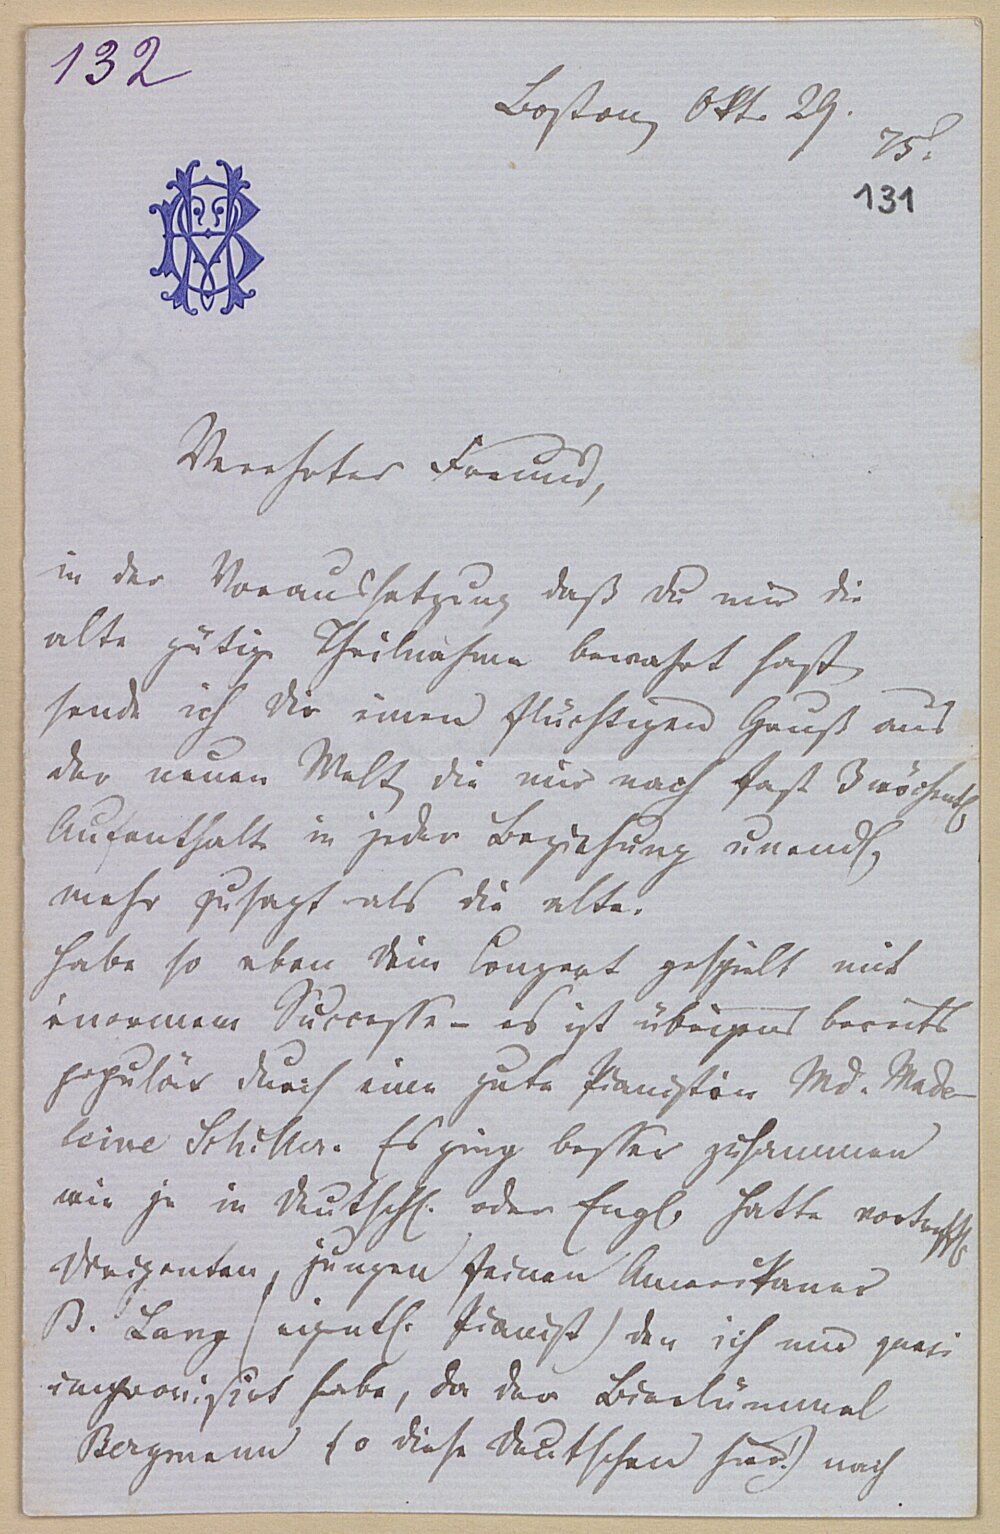 132
Boston, Okt. 29.
75.
131
Verehrter Freund,
in der Voraussetzung daß Du mir die
alte gütige Theilnahme bewahrt hast,
sende ich Dir einen flüchtigen Gruß aus
der neuen Welt, die mir nach fast 3wöchentl.
Aufenthalt in jeder Beziehung unendl.
mehr zusagt als die alte.
Habe so eben Dein Conzert gespielt mit
enormem Successe – es ist übrigens bereits
populär durch eine gute Pianistin Md. Made-
leine Schiller. Es ging besser zusammen
wie je in Deutschl. oder Engl. hatte vortreffl.
Dirigenten, jungen feinen Amerikaner
B. Lang (eigentl. Pianist) den ich mir quasi
improvisirt habe, da der Bierlümmel
Bergmann (o diese Deutschen hier!) nach